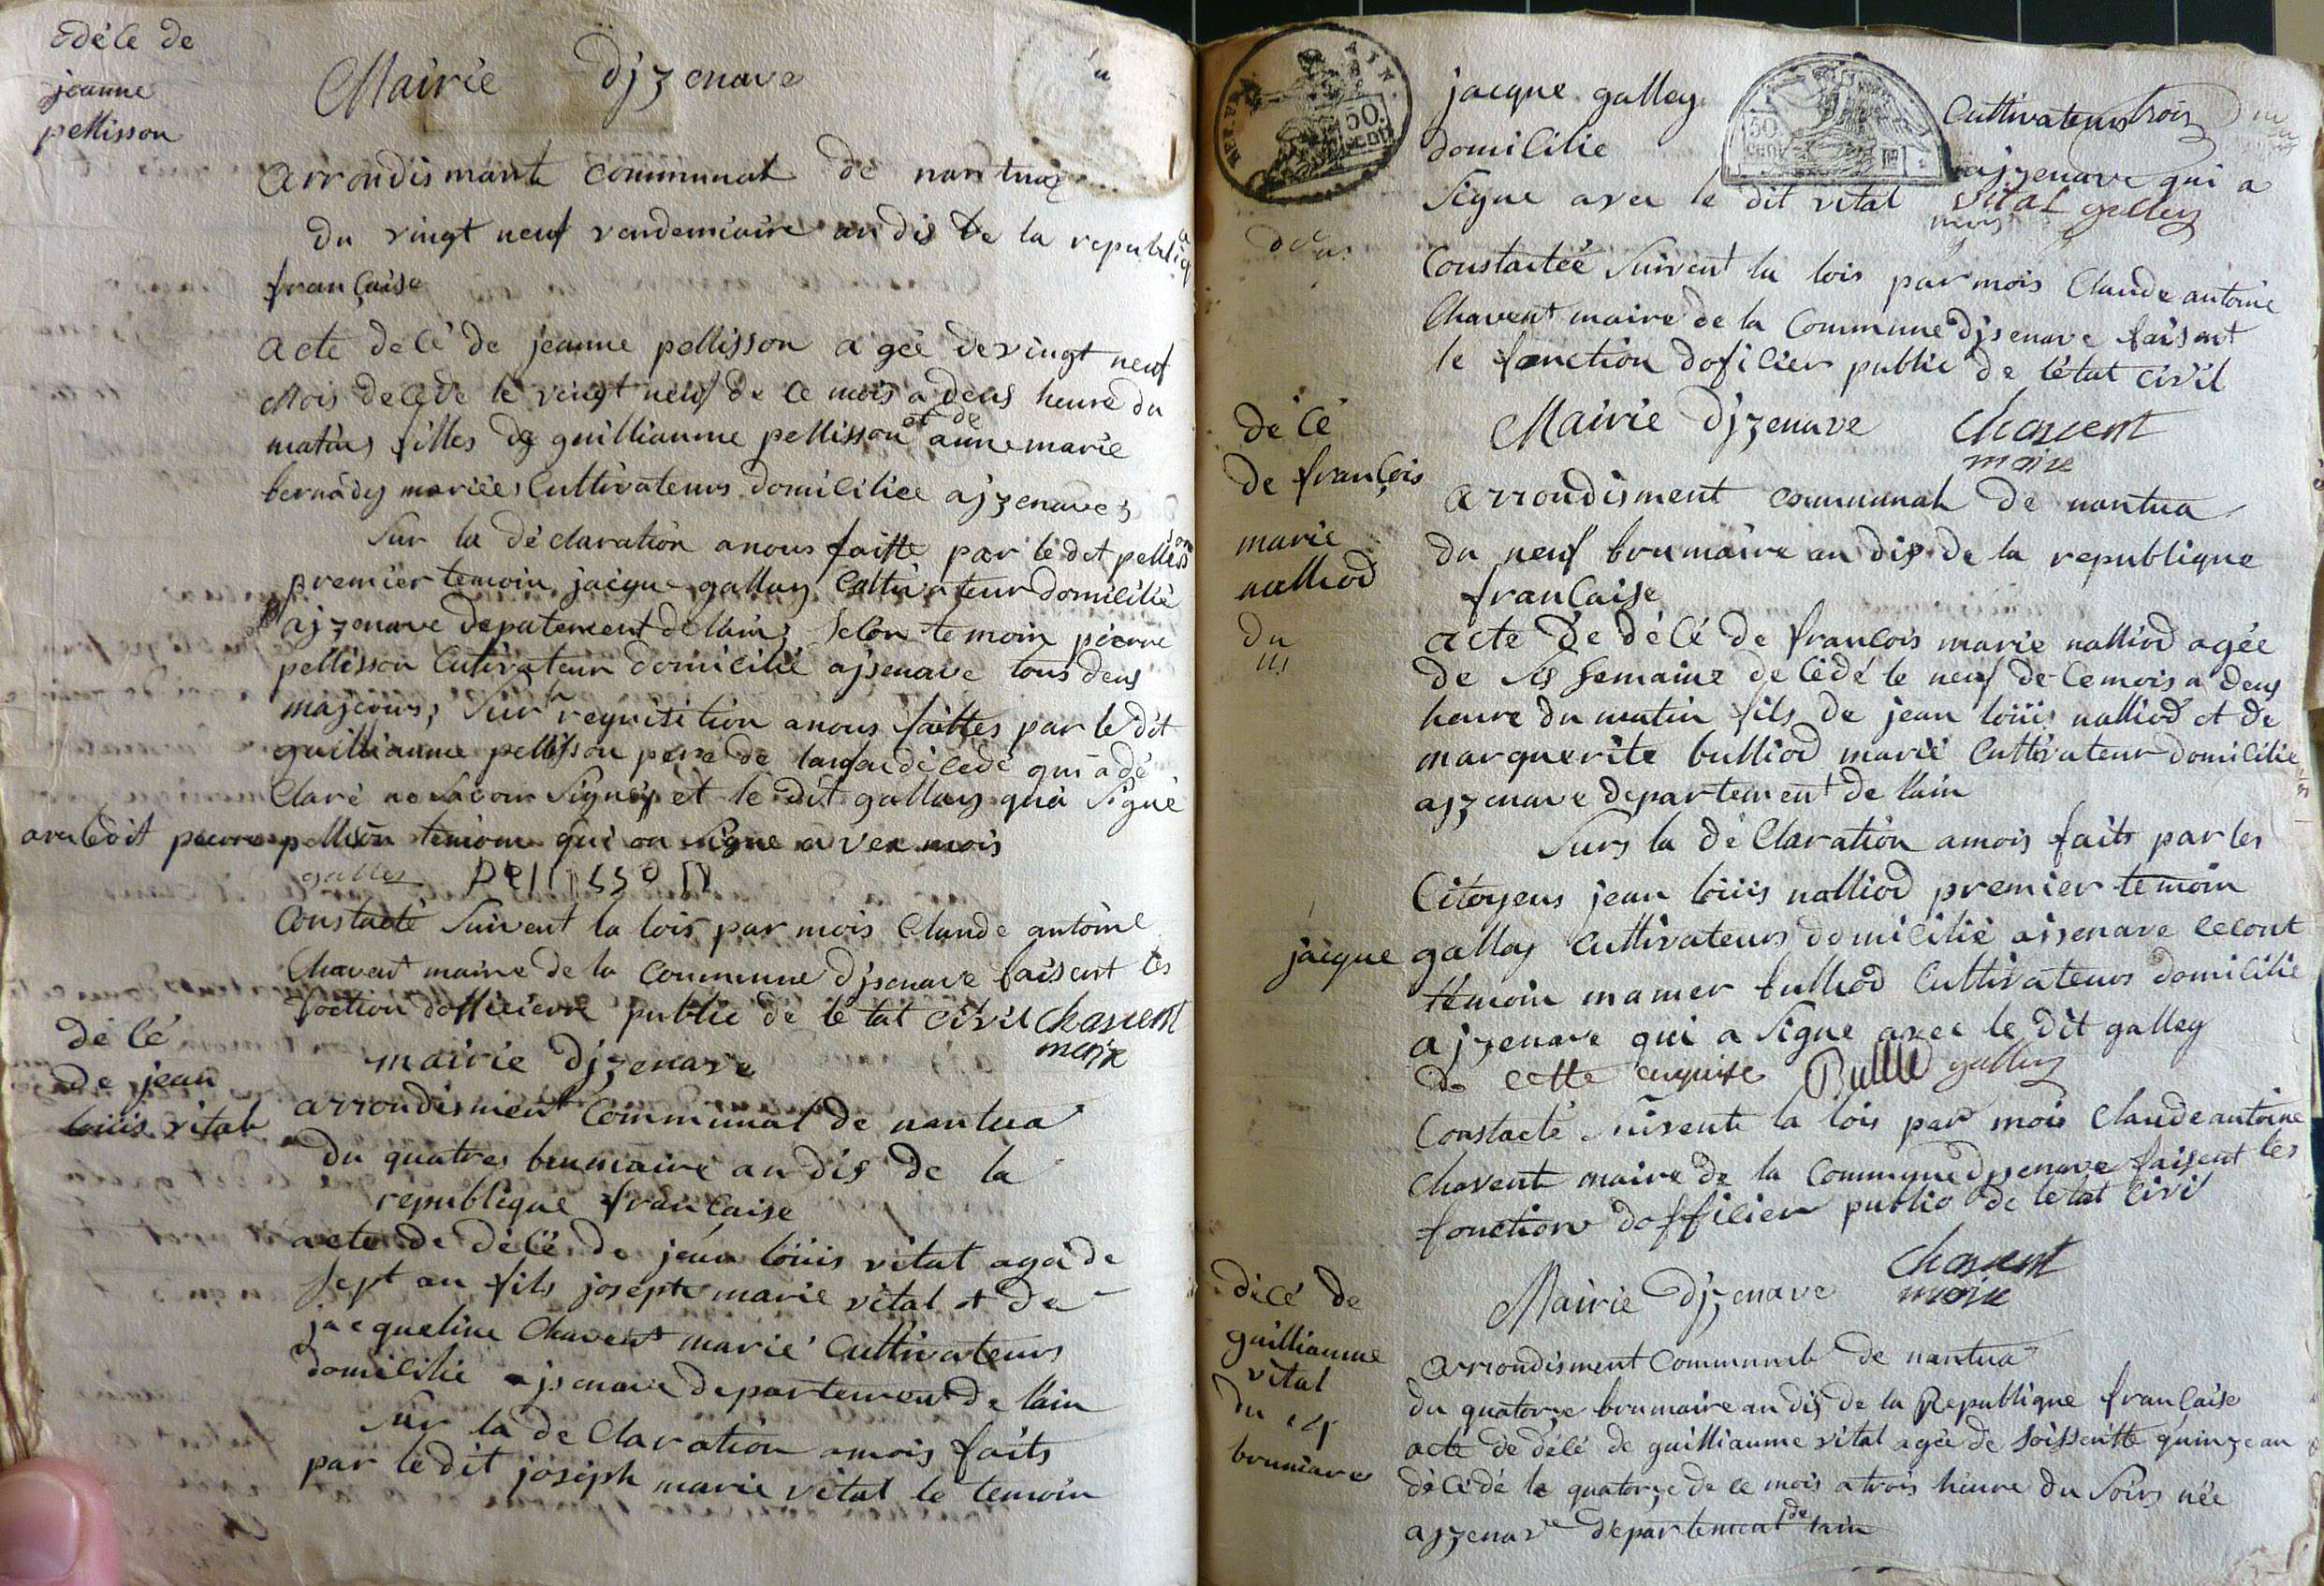 déle de
jeanne
pellisson
Mairie djzenave
arrondismante communat de nantua
du vingt neuf vendemiaire an dis de la republiq
française
acte delé de jeanne pellisson agée de vingt neuf
mois decede le vingt neuf de ce mois a deus heure du
matins filles de guilliaume pellisson et de anne marie
bernady mariées Cultivateurs domicilice ajzenave
Sur la déclaration anous faitte par le dit pellisson
premier temoin jacque gallay Cultivateur domicilié
ajzenave depatement de lain; Selon temoin pierre
pellisson Cutivateur domicilié ajsenave tous deus
majeours; Sur requisition anous faittes par le dit
guilliaume pellisson pere de decedé qui a dé
Claré ne Savoir Signé et le dit gallay qui a Signé
pierre pellison temoin qui on Signe avex mois
galley pellisson
Constacté Suivent la lois par mois Claude antoine
Chavent maire de la Commune djsenave faisent les
foction dofficierre public de le tat civil Chavent
maire
délé
de jean
loüis vital
mairie djzenave
arrondisment Communal de nantua
Du quatres brumaire an dis de la
republique française
acte de délé de jean loüis vital aga de
Sept an fils josepte marie vital et de
jacqueline Chavent marié Cultivateurs
domicilié ajsenave departement de lain
Sur la de Claration amois faits
par le dit joseph marie vital le temoin
jacque galley Cultivateurs trois
domicilie ajzenave qui a
Signe avec le dit vital vital galley
Constactée Suivent la lois par mois Claude antoine
Chavent maire de la Commune djsenave faisent
le fonction dofilier public de létat civil
Mairie djzenave Chavent
maire
délé
de françois
marie
nalliod
du
arrondisment communal de nantua
du neuf brumaire an dis de la republique
française
acte de délé de francois marie nalliod agée
de sis semaine decédé le neuf de ce mois a deus
heure du matin fils de jean loüis nalliod et de
marguerite bulliod marié Cultivateur domicilie
ajzenave departement de lain
Surs la dé Claration amois faits par les
Citoyens jean loüis nalliod premier temoin
jacque galley Cultivateurs domicilié aisenave cecont
temoin mamer bulliod Cultivateurs domicilie
ajzenave qui a Signe avec le dit galley
de cette enquise Bullio galley
Constacté Suivente la lois par mois Claude antoine
Chavent maire de la Commune djsenave faisent les
fonction dofficier public de letat Civi
Chavent
maire
délé de
guilliaume
vital
du 14
brumaires
Mairie djzenave
arrondisment Communale de nantua
du quatorze brumaire an dis de la Republique française
acte de délé de guilliaume vital agée de soissentte quinze an
décédé le quatorze de ce mois a trois heure du Soirs née
ajzenave departement de lain